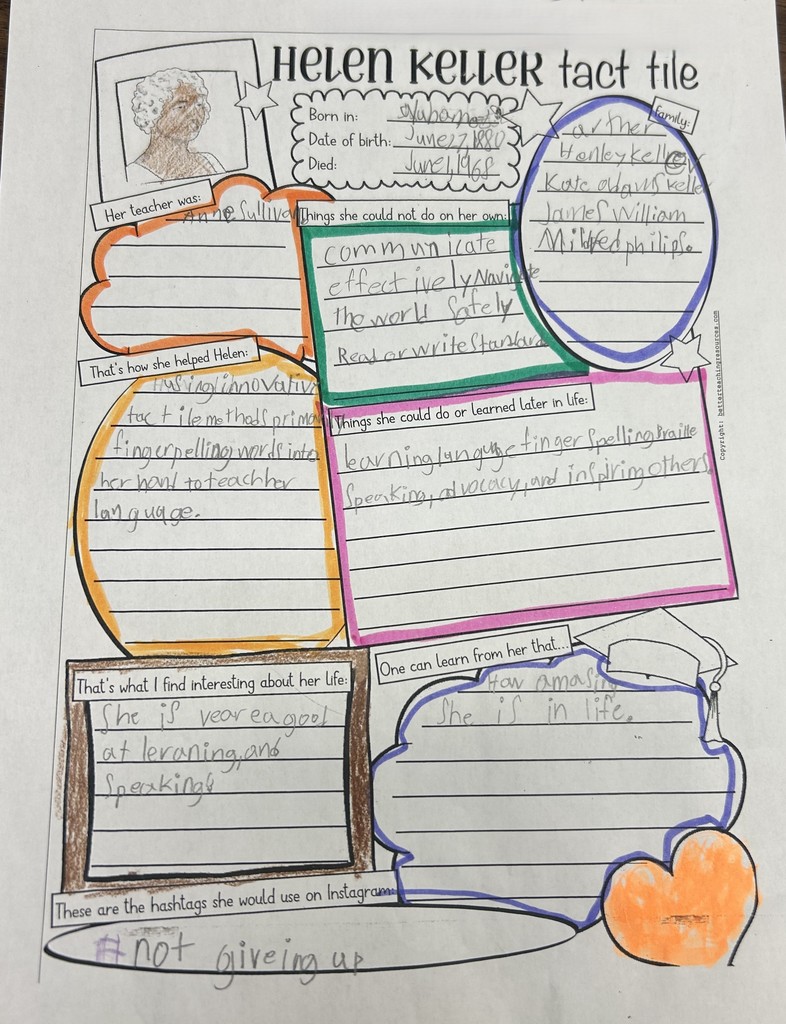 HELEN KELLER tact tile
Born in: Alabama
Date of birth: June 27, 1880
Died: June 1, 1968
family:
arther
Henley keller
Kate adams keller
James William
Mildred philips.
Her teacher was:
Anne Sullivan
Things she could not do on her own:
communicate
effectively Navigate
the world Safely
Read or write Standard
That's how she helped Helen:
using innovativ
tactile methods prima
fingerpelling words into
her hand to teach her
language.
Things she could do or learned later in life:
learning languge finger spelling Braille
Speaking, advocacy, and inspiring others.
Copyright: betterteachingresources.com
That's what I find interesting about her life:
She is vearea good
at leraning, and
Speaking
One can learn from her that...
How amasing
She is in life.
These are the hashtags she would use on Instagram:
#not giveing up